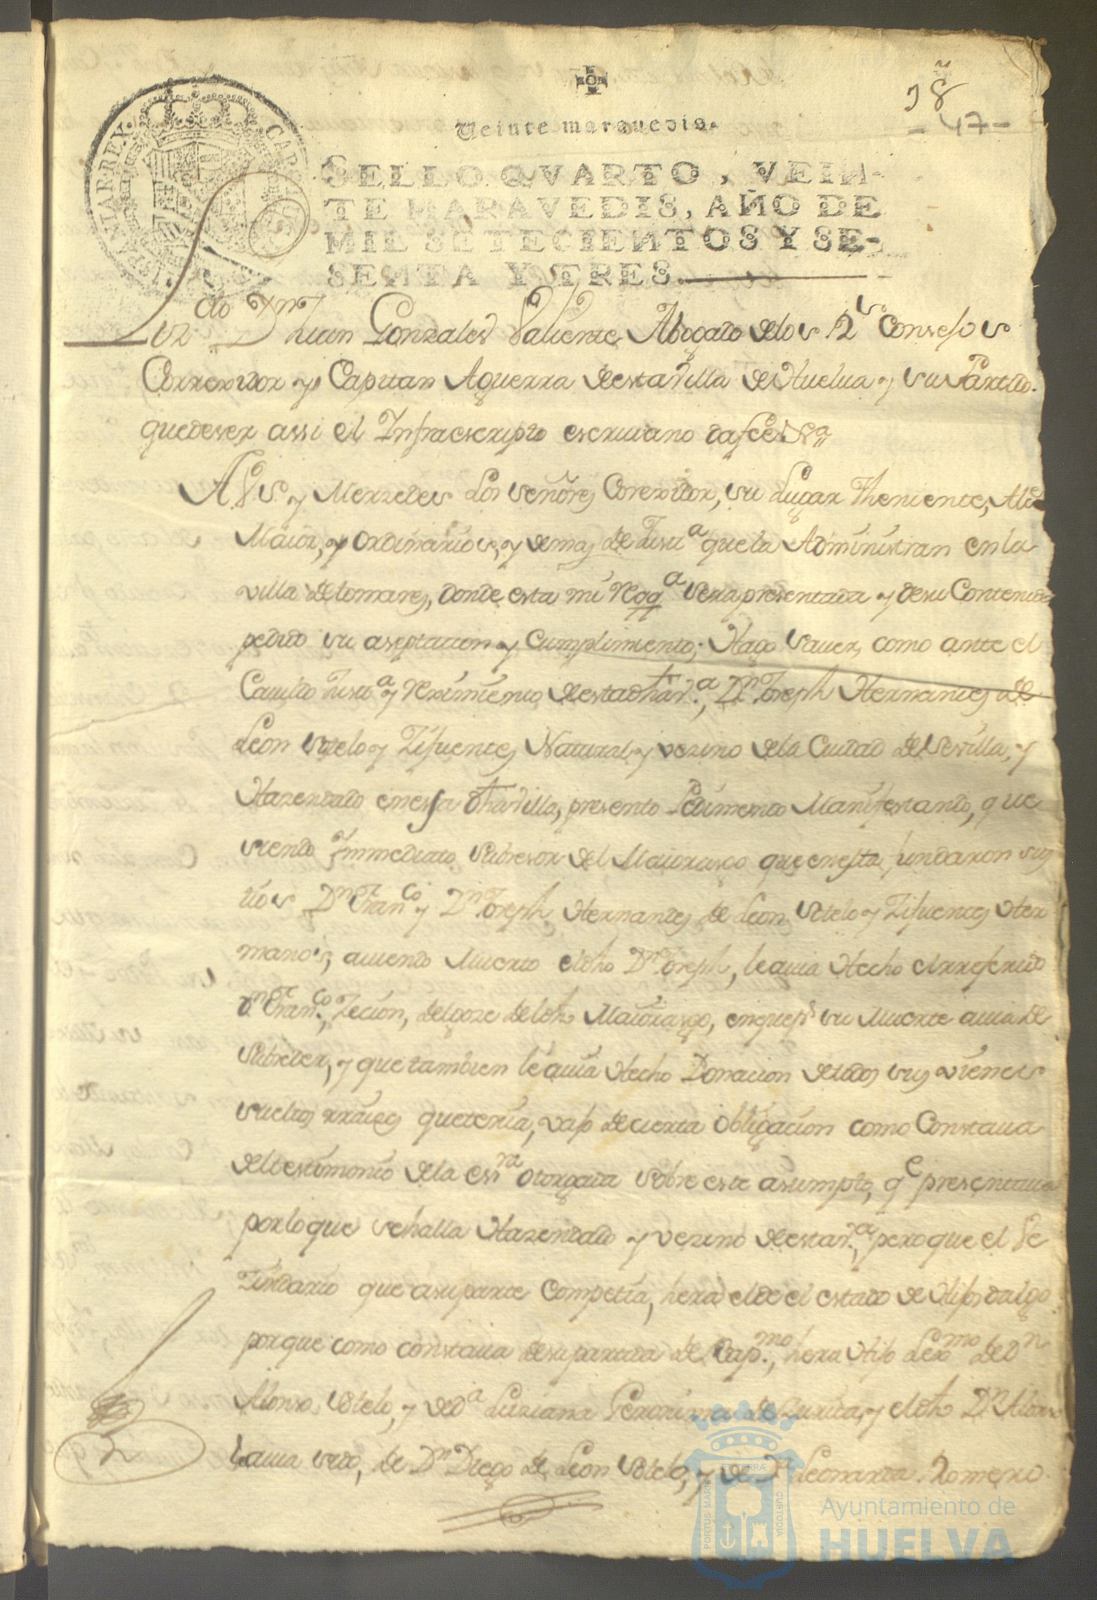 38
-47-
Veinte marauedis.
SELLO QVARTO, VEIN-
TE MARAVEDIS, AÑO DE
MIL SETECIENTOS Y SE-
SENTA Y TRES.
HISPANIAR. REX. CAROLUS
Lizdo Dn Juan Gonzales Valiente, Abogado de los Rs Consejos
Correxidor y Capitan Aguerra de esta Villa de Huelua y su Partido.
que de ser assi el Infraescripto escriuano da fee
A VSs y Merzedes Los señores Corexidor, su Lugar Theniente, Alce
Maior, y ordinarios, y demas de Justa que la Administran en la
villa de tomares, donde esta mi Reqa sera presentada y de su Contenido
pedido su aseptacion y Cumplimiento; Hago Sauer, como ante el
Cauildo Justa y reximiento de esta dha va, Dn Joseph Hernandes de
Leon Sotelo y Zifuentes Natural y vezino de la Ciudad de Sevilla, y
Hazendado en essa dha villa, presento Pedimento Manifestando, que
siendo Immediato subzesor del Maiorasgo que en esta, fundaron sus
tios Dn Franco y Dn Joseph Hernandes de Leon Sotelo y Zifuentes Her
manos, auiendo Muerto el dho Dn Joseph, le auia Hecho el rreferido
Dn Franco, Zecion, del goze de dho Maiorasgo, en que pr su Muerte auia de
Subzeder, y que tambien le auia Hecho Donacion de todos sus vienes
sueltos rraises que tenia, vajo de cierta obligacion como Constaua
del testimonio de la essra otorgada sobre este asumpto, qe presentaua
por lo que se halla Hazendado y vezino de esta va, pero que el Ve
zindario que a su parte Competia, hera el de el estado de Hijosdalgo
porque como constaua de su partida de Bapmo, hera Hijo Lexmo de Dn
Alonso Sotelo, y de Da Luziana Geronima de Zurita, y el dho Dn Alonso
lo auia sido, de Dn Diego de Leon Sotelo, y de Da Leonarda Romero
PORTUS MARIS
ET TERRAE
CUSTODIA
Ayuntamiento de
HUELVA